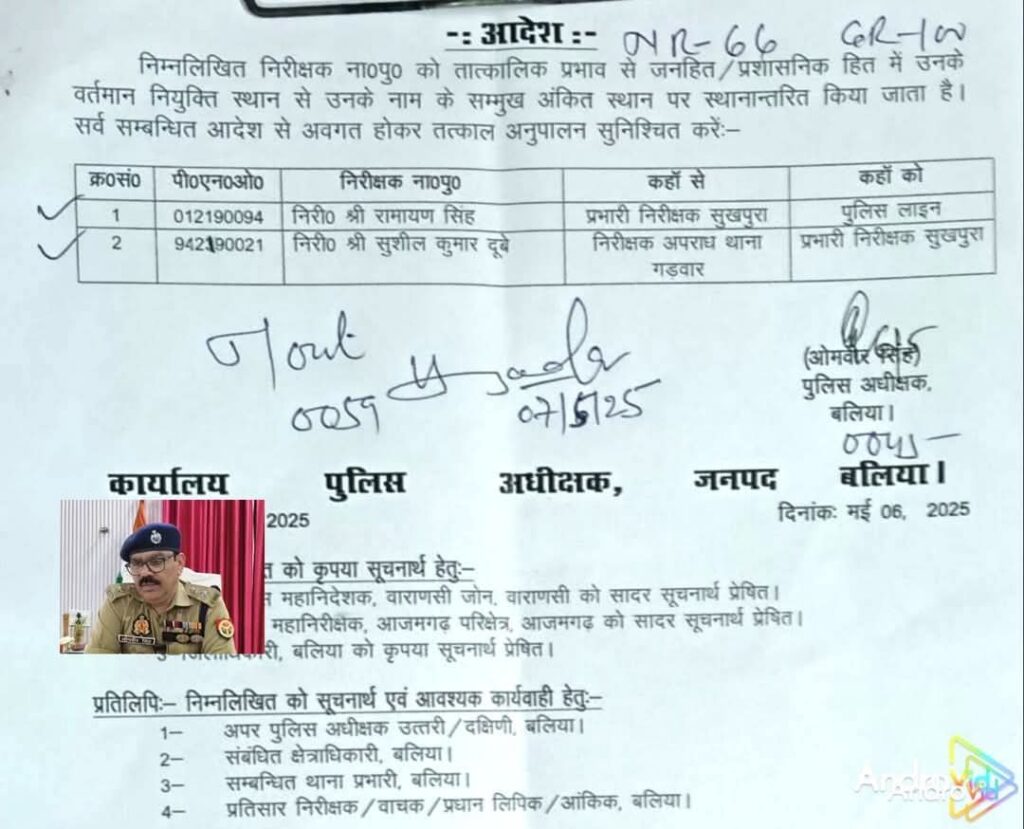 -: आदेश :-
NR-66 GR-100
निम्नलिखित निरीक्षक ना0पु0 को तात्कालिक प्रभाव से जनहित/प्रशासनिक हित में उनके
वर्तमान नियुक्ति स्थान से उनके नाम के सम्मुख अंकित स्थान पर स्थानान्तरित किया जाता है।
सर्व सम्बन्धित आदेश से अवगत होकर तत्काल अनुपालन सुनिश्चित करेंः–
क्र0सं0 पी0एन0ओ0 निरीक्षक ना0पु0 कहाॅ से कहाॅ को
1 012190094 निरी0 श्री रामायण सिंह प्रभारी निरीक्षक सुखपुरा पुलिस लाइन
2 942190021 निरी0 श्री सुशील कुमार दूबे निरीक्षक अपराध थाना प्रभारी निरीक्षक सुखपुरा
गड़वार
0059
07/5/25
(ओमवीर सिंह)
पुलिस अधीक्षक,
बलिया।
कार्यालय पुलिस अधीक्षक, जनपद बलिया।
2025 दिनांकः मई 06, 2025
को कृपया सूचनार्थ हेतुः–
महानिदेशक, वाराणसी जोन, वाराणसी को सादर सूचनार्थ प्रेषित।
महानिरीक्षक, आजमगढ़ परिक्षेत्र, आजमगढ़ को सादर सूचनार्थ प्रेषित।
बलिया को कृपया सूचनार्थ प्रेषित।
प्रतिलिपिः– निम्नलिखित को सूचनार्थ एवं आवश्यक कार्यवाही हेतुः–
1– अपर पुलिस अधीक्षक उत्तरी/दक्षिणी, बलिया।
2– संबंधित क्षेत्राधिकारी, बलिया।
3– सम्बन्धित थाना प्रभारी, बलिया।
4– प्रतिसार निरीक्षक/वाचक/प्रधान लिपिक/आंकिक, बलिया।